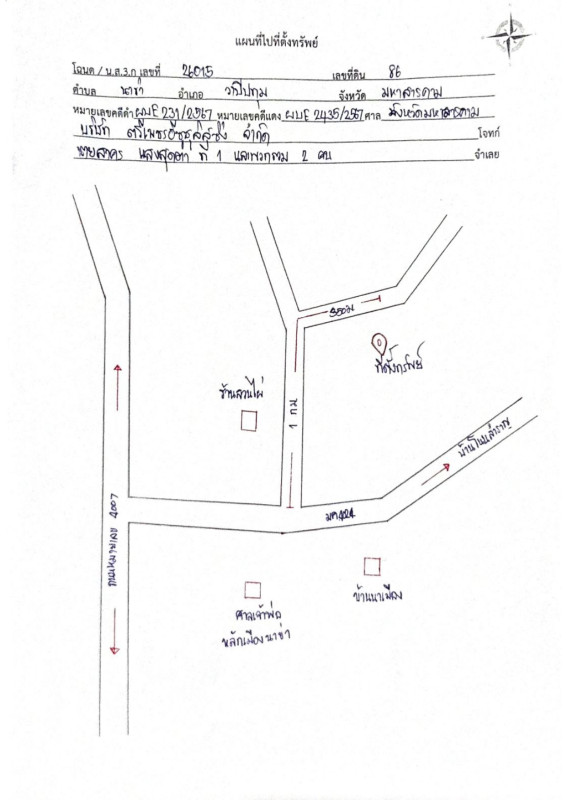 แผนที่ไปที่ตั้งทรัพย์
โฉนด / น.ส.3.ก เลขที่ 26015 เลขที่ดิน 86
ตำบล นาข่า อำเภอ วาปีปทุม จังหวัด มหาสารคาม
หมายเลขคดีดำ ผบE 231/2567 หมายเลขคดีแดง ผบE 2435/2567 ศาล จังหวัดมหาสารคาม
บริษัท จำกัด โจทก์
นายสาคร ที่ 1 2 คน จำเลย
350ม
ที่ตั้งทรัพย์
ร้านสวนไผ่
1 กม
บ้านโนนสำราญ
ถนนหมายเลข 4007
ศาลเจ้าพ่อ
หลักเมืองนาข่า